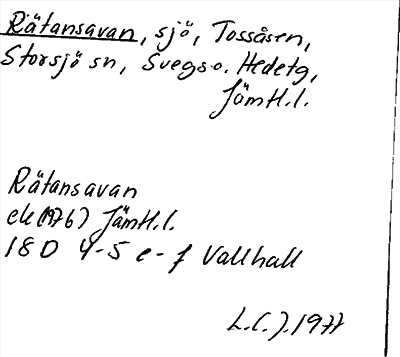 Rätansavan, sjö, Tossåsen,
Storsjö sn, Svegs o. Hedetg,
Jämtl.l.
Rätansavan
ek (1976) Jämtl.l.
18D 4-5 e-f Vallhall
L.C.J. 1977